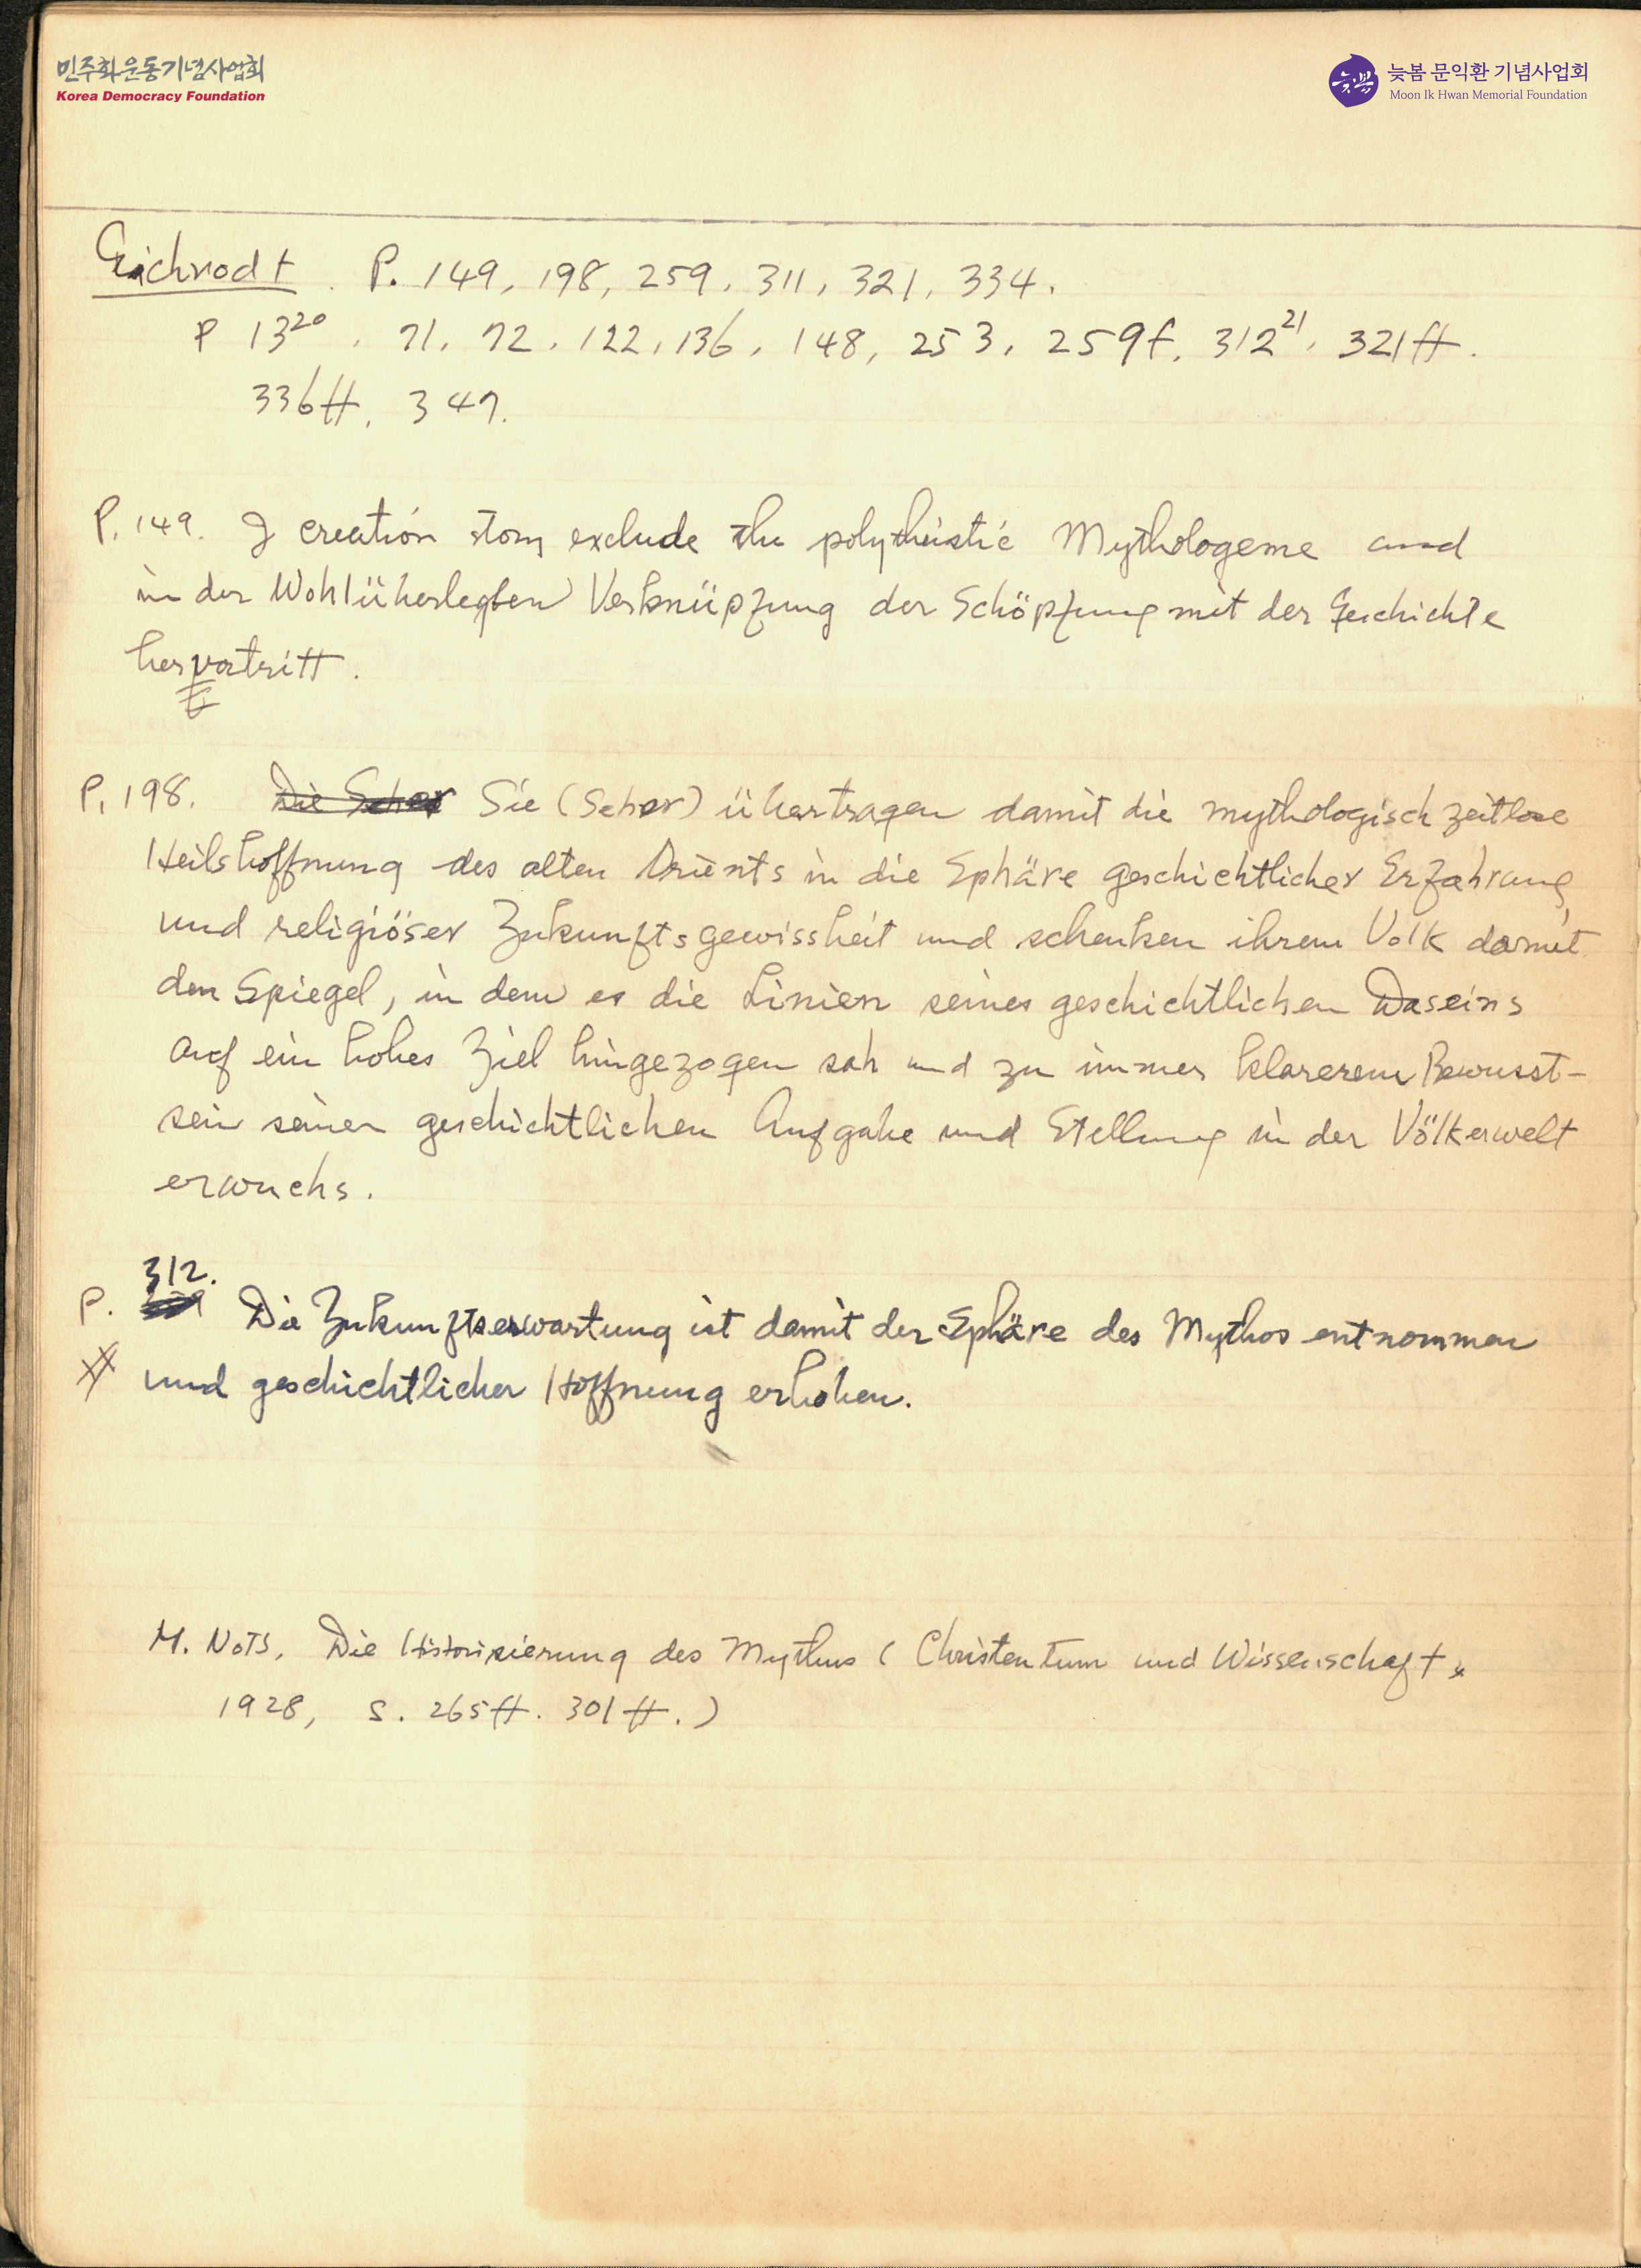 민주화운동기념사업회
Korea Democracy Foundation
늦봄 문익환 기념사업회
Moon Ik Hwan Memorial Foundation
Eichrodt. P. 149, 198, 259, 311, 321, 334.
P 13²⁰, 71, 72, 122, 136, 148, 253, 259f, 312²¹, 321ff.
336ff, 347.
P. 149. J creation story exclude the polytheistic Mythologeme and
in der Wohlüberlegten Verknüpfung der Schöpfung mit der Geschichte
hervortritt.
P. 198. Die Seher Sie (Seher) übertragen damit die mythologisch zeitlose
Heilshoffnung des alten Orients in die Sphäre geschichtlicher Erfahrung
und religiöser Zukunftsgewissheit und schenken ihrem Volk damit
den Spiegel, in dem es die Linien seines geschichtlichen Daseins
auf ein hohes Ziel hingezogen sah und zu immer klarerem Bewusst-
sein seiner geschichtlichen Aufgabe und Stellung in der Völkerwelt
erwuchs.
312.
P. Die Zukunftserwartung ist damit der Sphäre des Mythos entnommen
und geschichtlicher Hoffnung erhoben.
M. Noth, Die Historisierung des Mythus (Christentum und Wissenschaft,
1928, S. 265ff. 301ff.)